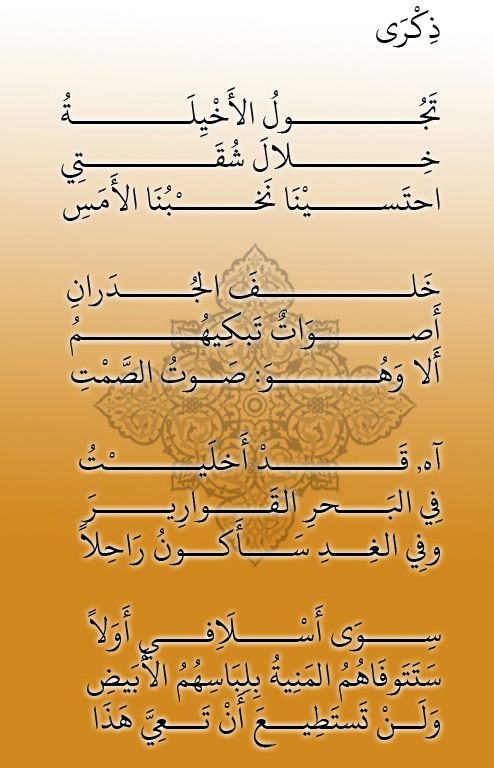 ذِكْرَى
تَجُـــولُ الأَخْيِلَـــةُ
خِـــلالَ شُقَـــتِي
احتَســـيْنَا نَخـــبُنَا الأَمَسِ
خَلـــفَ الجُـــدَرانِ
أَصـــوَاتٌ تَبكِيهُـــمُ
أَلا وَهُـــوَ: صَـــوتُ الصَّمْتِ
آه, قَـــدْ أَخلَيـــتُ
فِي البَـــحرِ القَـــوارِيـــرَ
وفِي الغِـــدِ سَـــأَكـــونُ رَاحِلاً
سِـــوَى أَسْـــلَافِـــي أَوَلاً
سَتَتَوفَاهُمُ المَنِيةُ بِلِبَاسِهُمُ الأَبيَضِ
وَلَـــنْ تَستَطِيـــعَ أَنْ تَـــعِيَّ هَذَا